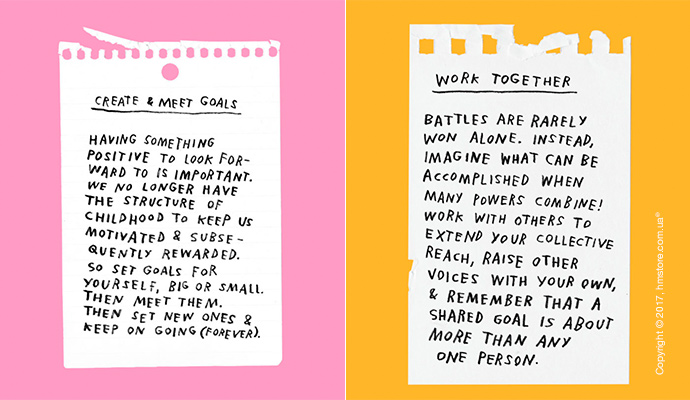 CREATE & MEET GOALS
HAVING SOMETHING
POSITIVE TO LOOK FOR-
WARD TO IS IMPORTANT.
WE NO LONGER HAVE
THE STRUCTURE OF
CHILDHOOD TO KEEP US
MOTIVATED & SUBSE-
QUENTLY REWARDED.
SO SET GOALS FOR
YOURSELF, BIG OR SMALL.
THEN MEET THEM.
THEN SET NEW ONES &
KEEP ON GOING (FOREVER).
WORK TOGETHER
BATTLES ARE RARELY
WON ALONE. INSTEAD,
IMAGINE WHAT CAN BE
ACCOMPLISHED WHEN
MANY POWERS COMBINE!
WORK WITH OTHERS TO
EXTEND YOUR COLLECTIVE
REACH, RAISE OTHER
VOICES WITH YOUR OWN,
& REMEMBER THAT A
SHARED GOAL IS ABOUT
MORE THAN ANY
ONE PERSON.
Copyright © 2017, hmstore.com.ua®